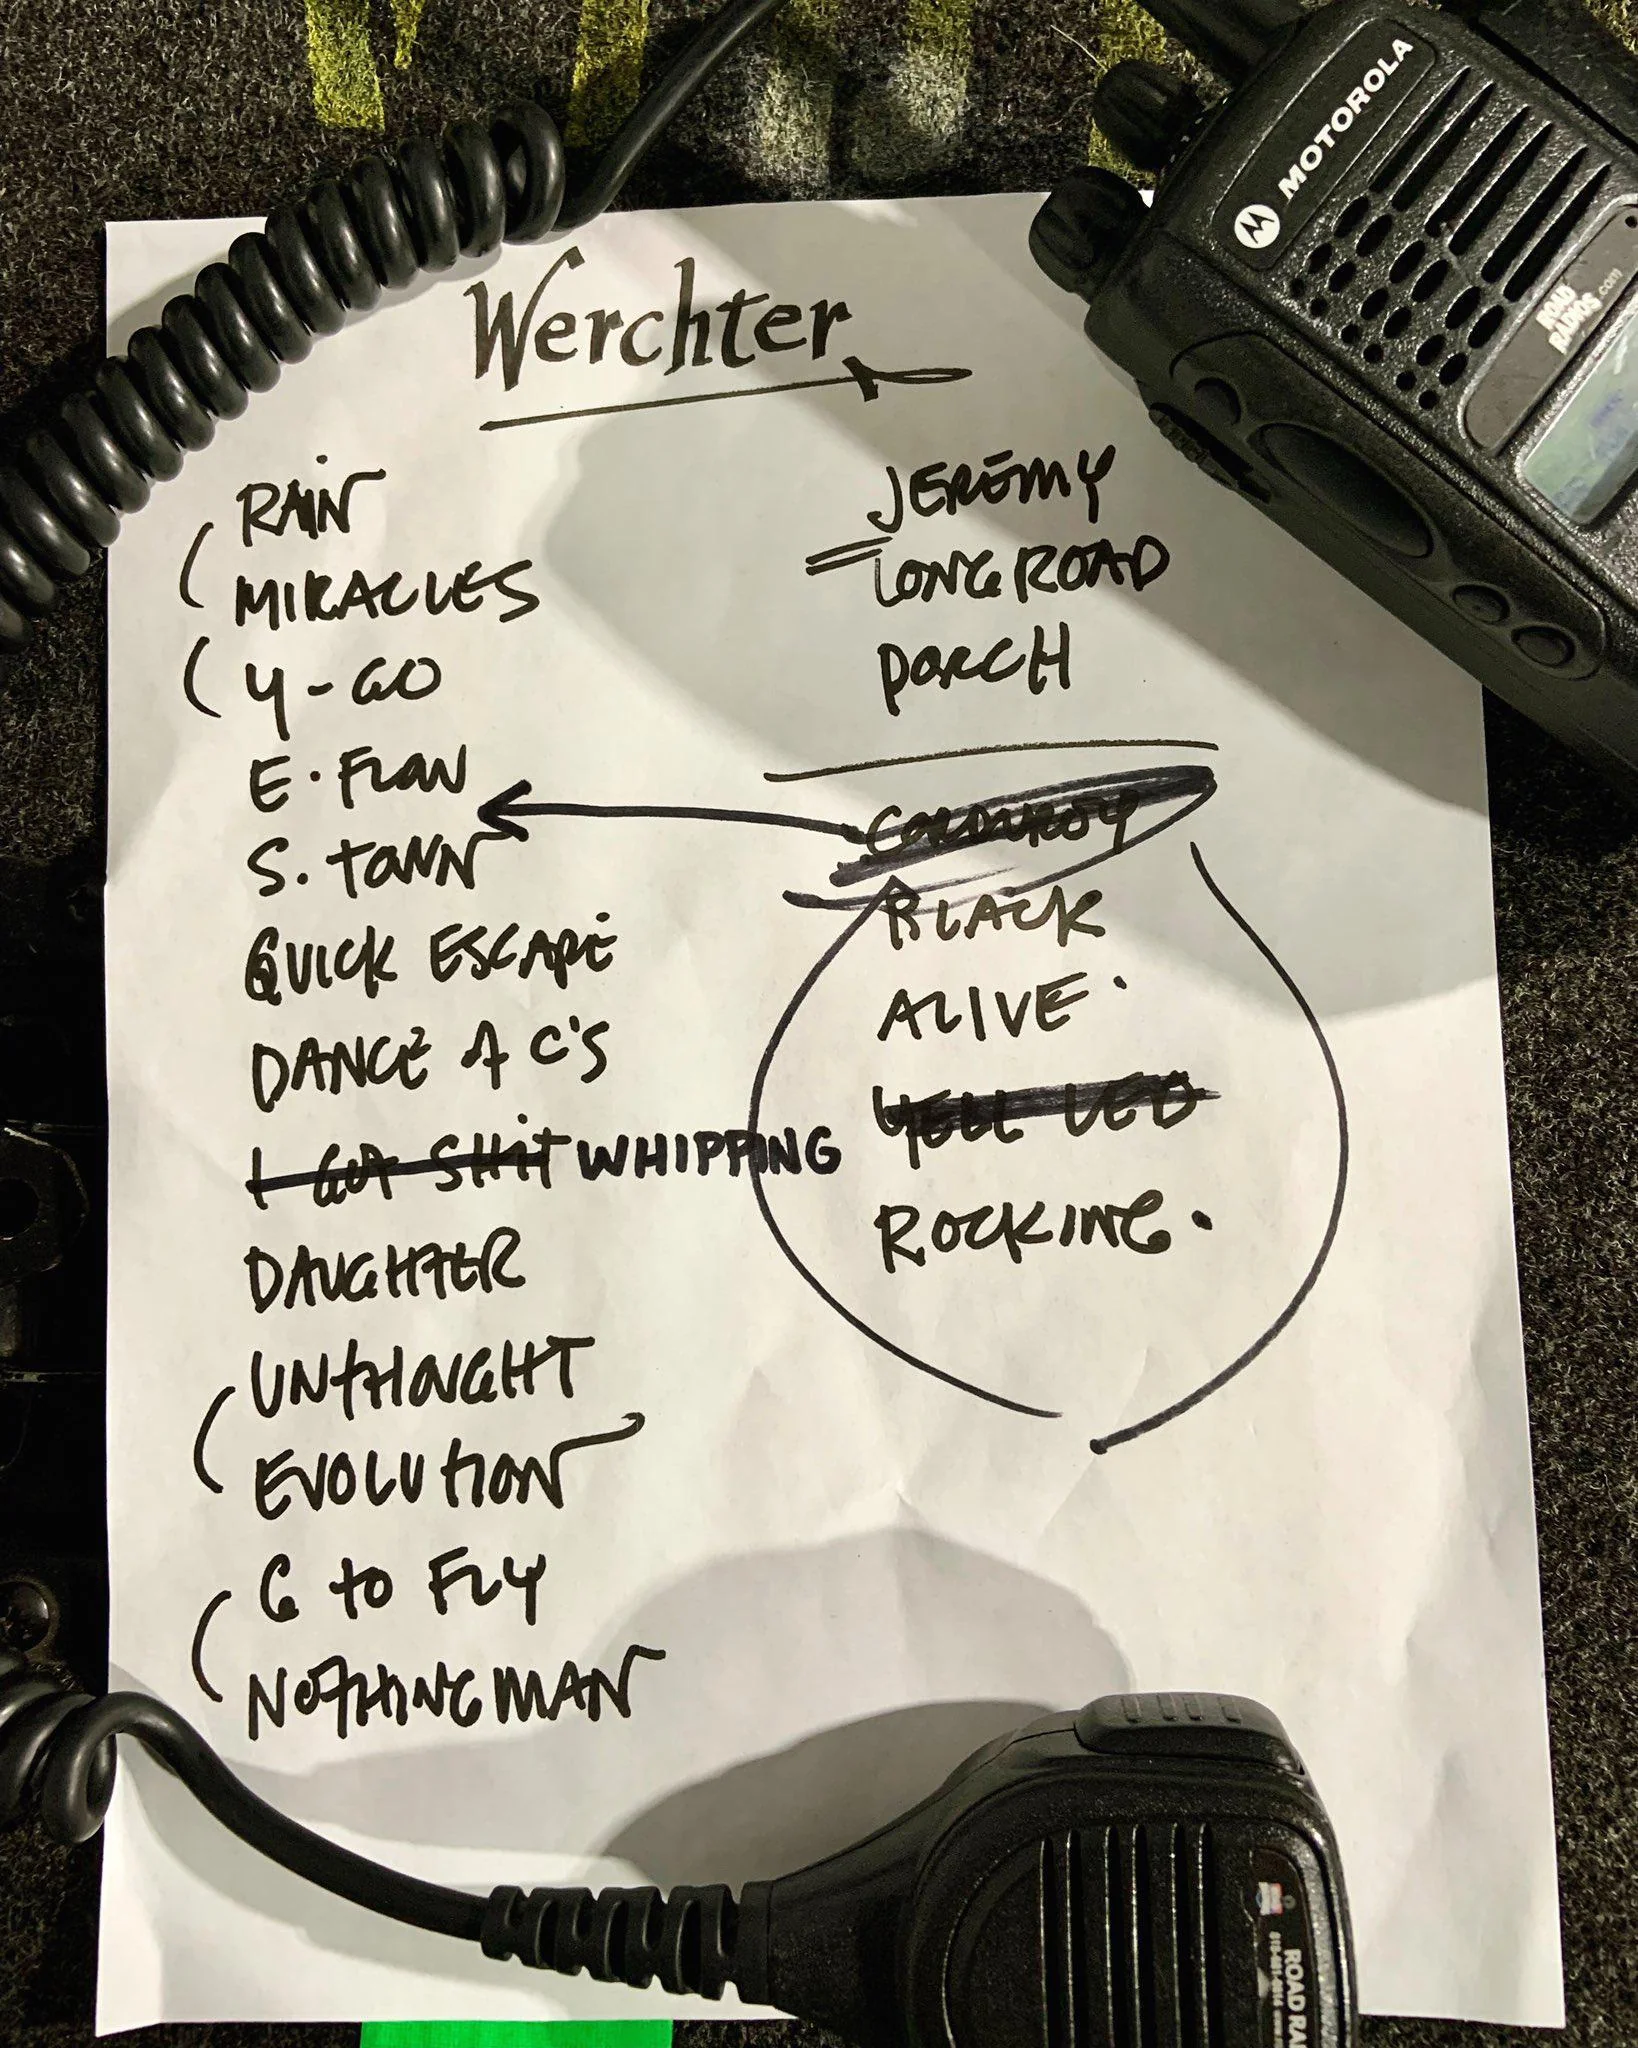 MOTOROLA
ROAD RADIOS.com
Werchter
RAIN
MIRACLES
Y-GO
E. FLOW
S. TOWN
QUICK ESCAPE
DANCE OF C'S
I GOT SHIT WHIPPING
DAUGHTER
UNTHOUGHT
EVOLUTION
G TO FLY
NOTHINGMAN
JEREMY
LONG ROAD
PORCH
CORDUROY
BLACK
ALIVE.
YELL LED
ROCKING.
ROAD RA